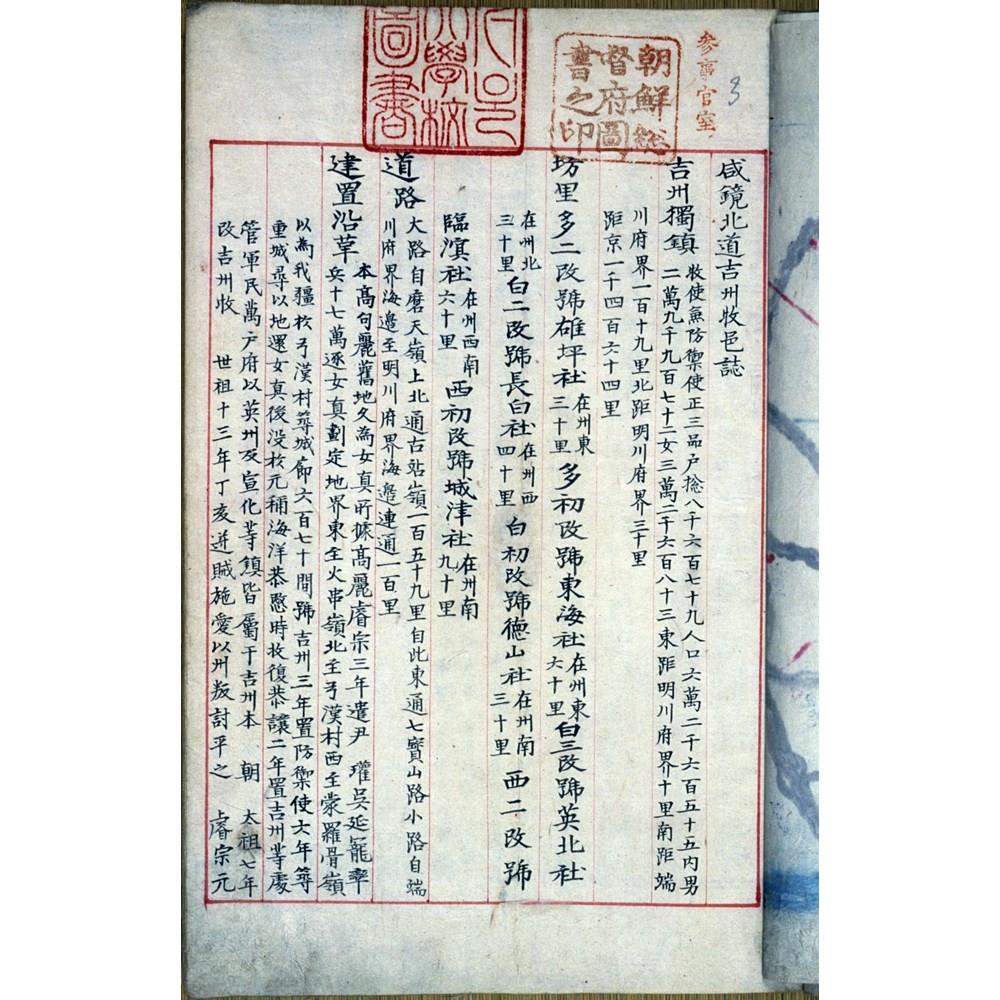 参事官室
3
朝鮮総
督府圖
書之印
서울
大學校
圖書
咸鏡北道吉州牧邑誌
吉州獨鎮 牧使兼防禦使正三品戶捴八千六百七十九人口六萬二千六百五十五內男
二萬九千九百七十二女三萬二千六百八十三東距明川府界十里南距端
川府界一百十九里北距明川府界三十里
距京一千四百六十四里
坊里 多二改號雄坪社 在州東三十里 多初改號東海社 在州東六十里 白三改號英北社
在州北三十里 白二改號長白社 在州西四十里 白初改號德山社 在州南三十里 西二改號
臨溟社 在州西南六十里 西初改號城津社 在州南九十里
道路 大路自磨天嶺上北通古站嶺一百五十九里自此東通七寶山路小路自端
川府界海邊至明川府界海邊連通一百里
建置沿革 本高句麗舊地久為女真所據高麗睿宗三年遣尹 瓘吳延寵率
兵十七萬逐女真劃定地界東至火串嶺北至弓漢村西至蒙羅骨嶺
以為我疆於弓漢村築城廊六百七十間號吉州三年置防禦使六年築
重城尋以地還女真後沒於元稱海洋恭愍時收復恭讓二年置吉州等處
管軍民萬戶府以英州及宣化等鎮皆屬于吉州本 朝 太祖七年
改吉州牧 世祖十三年丁亥逆賊施愛以州叛討平之 睿宗元